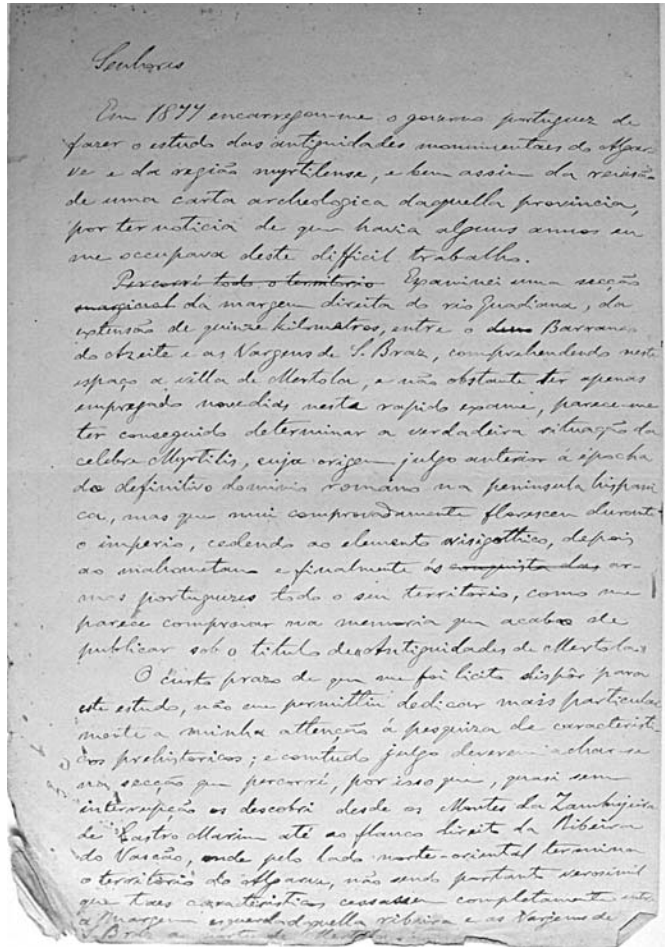 Senhores
Em 1877 encarregou-me o governo portuguez de
fazer o estudo das antiguidades monumentaes do Algar-
ve e da região myrtilense, e bem assim da revisão
de uma carta archeologica daquella provincia,
por ter noticia de que havia alguns annos eu
me occupava deste difficil trabalho.
Percorri todo o territorio Examinei uma secção
marginal da margem direita do rio Guadiana, da
extensão de quinze kilometros, entre o Barranco
do Azeite e as Vargens de S. Braz, comprehendendo neste
espaço a villa de Mertola, e não obstante ter apenas
empregado nove dias neste rapido exame, parece-me
ter conseguido determinar a verdadeira situação da
celebre Myrtilis, cuja origem julgo anterior á epocha
do definitivo dominio romano na peninsula hispani
ca, mas que mui comprovadamente floresceu durante
o imperio, cedendo ao elemento visigothico, depois
ao mahometano e finalmente ás conquista das ar-
mas portuguezas todo o seu territorio, como me
parece comprovar na memoria que acabo de
publicar sob o titulo de Antiguidades de Mertola.
O curto prazo de que me foi licito dispôr para
este estudo, não me permittiu dedicar mais particular
mente a minha attenção á pesquiza de caracteristi
cos prehistoricos; e comtudo julgo deverem achar-se
na secção que percorri, por isso que, quasi sem
interrupção os descobri desde os Montes da Zambujeira
de Castro Marim até ao flanco direito da Ribeira
do Vascão, onde pelo lado norte-oriental termina
o territorio do Algarve, não sendo portanto verosimil
que taes caracteristicos cessassem completamente entre
a margem esquerda daquella ribeira e as Vargens de
S. Braz a norte de Mertola